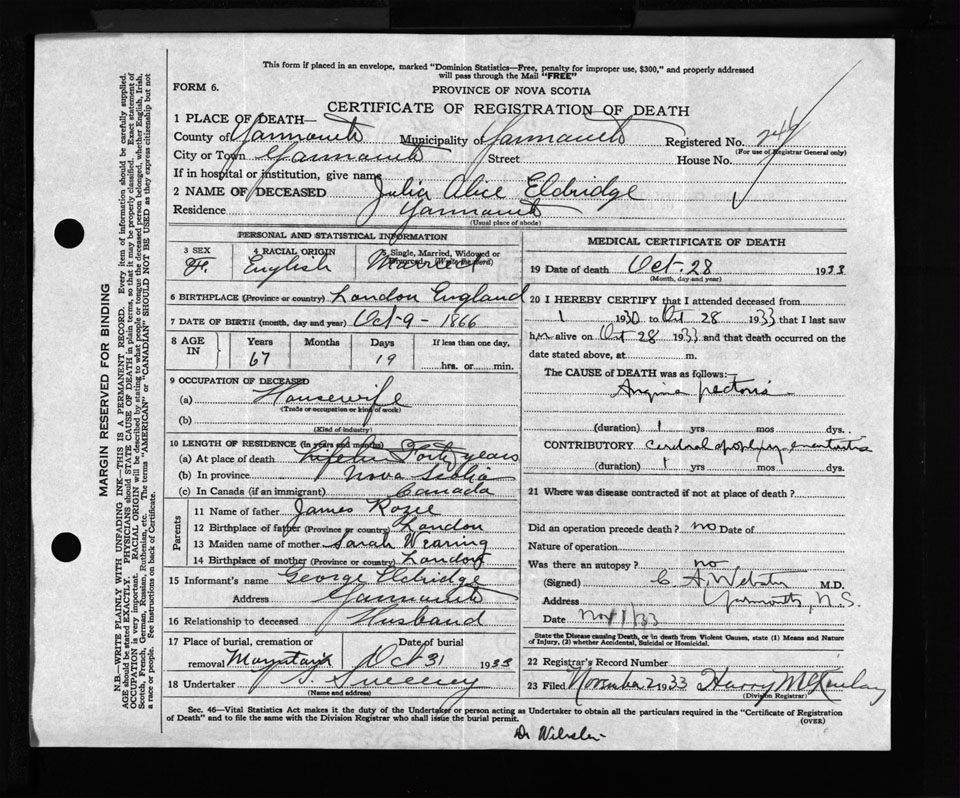 This form if placed in an envelope, marked "Dominion Statistics—Free, penalty for improper use, $300," and properly addressed
will pass through the Mail "FREE"
FORM 6.
PROVINCE OF NOVA SCOTIA
CERTIFICATE OF REGISTRATION OF DEATH
1 PLACE OF DEATH—
County of Yarmouth Municipality Yarmouth Registered No. 246
(For use of Registrar General only)
City or Town Yarmouth Street House No.
If in hospital or institution, give name
2 NAME OF DECEASED Julia Alice Eldridge
Residence Yarmouth
(Usual place of abode)
PERSONAL AND STATISTICAL INFORMATION
3 SEX 4 RACIAL ORIGIN 5 Single, Married, Widowed or
Divorced (Write the word)
F. English Married
6 BIRTHPLACE (Province or country) London England
7 DATE OF BIRTH (month, day and year) Oct-9-1866
8 AGE IN Years Months Days If less than one day,
67 19 hrs. or min.
9 OCCUPATION OF DECEASED
(a) Housewife
(Trade or occupation or kind of work)
(b)
(Kind of industry)
10 LENGTH OF RESIDENCE (in years and months)
(a) At place of death Forty years
(b) In province Nova Scotia
(c) In Canada (if an immigrant) Canada
Parents
11 Name of father James Rozee
12 Birthplace of father (Province or country) London
13 Maiden name of mother Sarah Wearing
14 Birthplace of mother (Province or country) London
15 Informant's name George Eldridge
Address Yarmouth
16 Relationship to deceased Husband
17 Place of burial, cremation or Date of burial
removal Mountain Oct 31 1933
18 Undertaker Sweeney
(Name and address)
MEDICAL CERTIFICATE OF DEATH
19 Date of death Oct. 28 1933
(Month, day and year)
20 I HEREBY CERTIFY that I attended deceased from
1 1930 to Oct 28 1933 that I last saw
her alive on Oct 28 1933 and that death occurred on the
date stated above, at m.
The CAUSE of DEATH was as follows:
Angina pectoris
(duration) 1 yrs mos dys.
CONTRIBUTORY Cerebral apoplexy
(duration) 1 yrs mos dys.
21 Where was disease contracted if not at place of death?
Did an operation precede death? no Date of
Nature of operation
Was there an autopsy? no
(Signed) C A Webster M.D.
Address Yarmouth, N.S.
Date Nov 1/33
State the Disease causing Death, or in death from Violent Causes, state (1) Means and Nature
of Injury, (2) whether Accidental, Suicidal or Homicidal.
22 Registrar's Record Number
23 Filed November 2 1933 Harry McKinlay
(Division Registrar)
Sec. 46—Vital Statistics Act makes it the duty of the Undertaker or person acting as Undertaker to obtain all the particulars required in the "Certificate of Registration
of Death" and to file the same with the Division Registrar who shall issue the burial permit.
(OVER)
Dr Webster
MARGIN RESERVED FOR BINDING
N.B.—WRITE PLAINLY WITH UNFADING INK—THIS IS A PERMANENT RECORD. Every item of information should be carefully supplied.
AGE should be stated EXACTLY. PHYSICIANS should STATE CAUSE OF DEATH in plain terms, so that it may be properly classified. Exact statement of
OCCUPATION is very important. RACIAL ORIGIN will be described by stating to what people or tongue the deceased person belonged, whether English, Irish,
Scotch, French, German, Russian, Ruthenian, etc. The terms "AMERICAN" or "CANADIAN" SHOULD NOT BE USED as they express citizenship but not
a race or people. See instructions on back of Certificate.